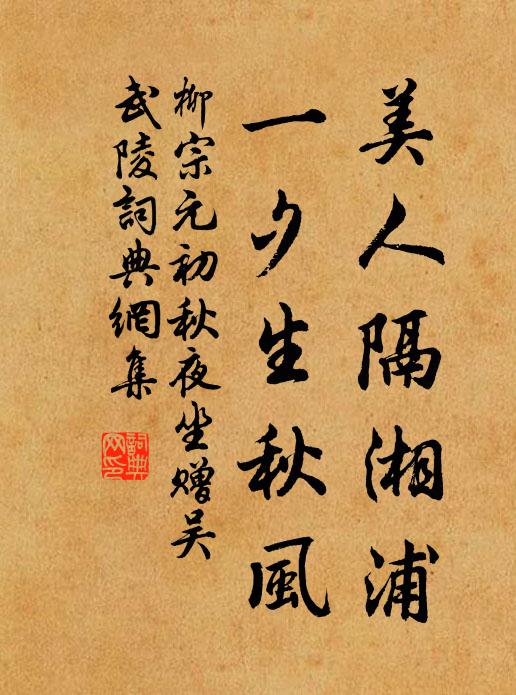 美人隔湘浦
一夕生秋風
柳宗元初秋夜坐贈吳
武陵詞典網集
詞典網印